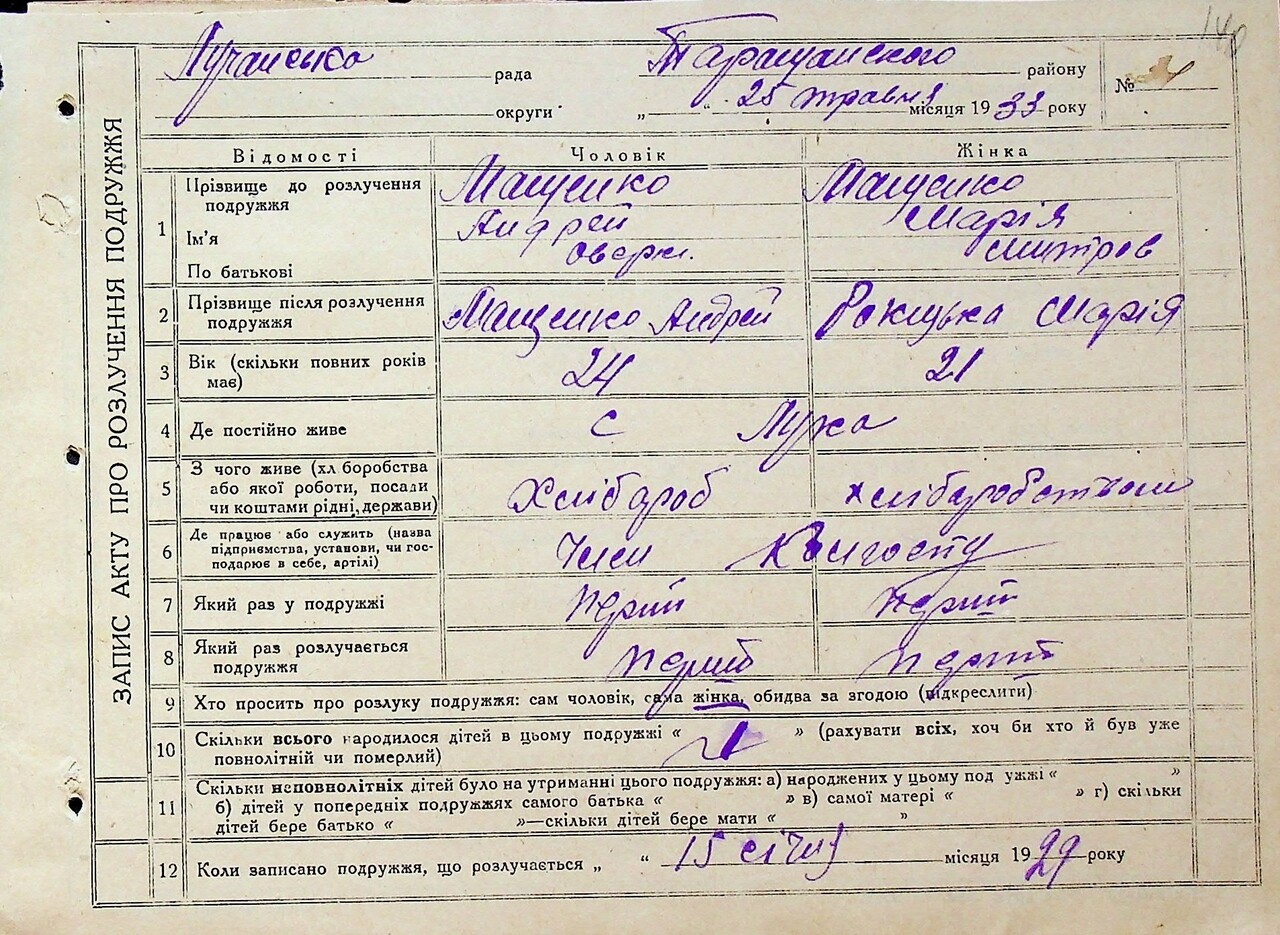 140
ЗАПИС АКТУ ПРО РОЗЛУЧЕННЯ ПОДРУЖЖЯ
Лучанська рада Таращанского району №
округи „ " 25 травня місяця 1933 року
Відомості Чоловік Жінка
1 Прізвище до розлучення подружжя Мащенко Мащенко
Ім'я Андрей Марія
По батькові Оверк. Митров
2 Прізвище після розлучення подружжя Мащенко Андрей Рокицька Марія
3 Вік (скільки повних років має) 24 21
4 Де постійно живе с Лука
5 З чого живе (хл боробства
або якої роботи, посади
чи коштами рідні, держави) Хлібороб хліборобством
6 Де працює або служить (назва
підприємства, установи, чи гос-
подарює в себе, артілі) Член Колгоспу
7 Який раз у подружжі перший перший
8 Який раз розлучається
подружжя перший перший
9 Хто просить про розлуку подружжя: сам чоловік, сама жінка, обидва за згодою (підкреслити)
10 Скільки всього народилося дітей в цьому подружжі „ 1 " (рахувати всіх, хоч би хто й був уже
повнолітній чи померлий)
11 Скільки неповнолітніх дітей було на утриманні цього подружжя: а) народжених у цьому под ужжі „ "
б) дітей у попередніх подружжях самого батька „ " в) самої матері „ " г) скільки
дітей бере батько „ "—скільки дітей бере мати „ "
12 Коли записано подружжя, що розлучається „ " 15 січня місяця 1929 року